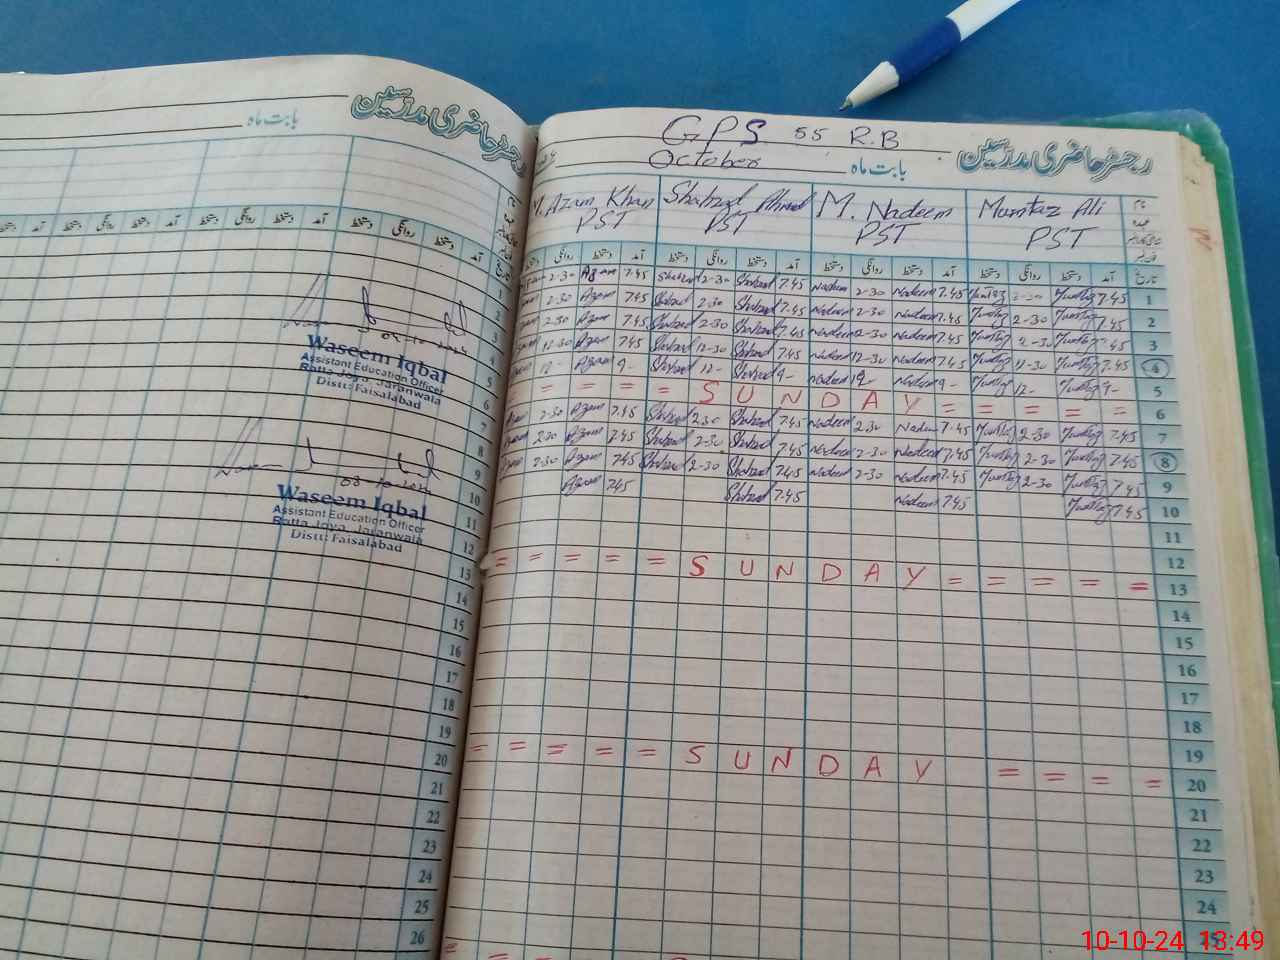 رجسٹر حاضری مدرسین
بابت ماہ
آمد دستخط روانگی دستخط آمد دستخط روانگی
تاریخ
1
2
3
4
5
6
7
8
9
10
11
12
13
14
15
16
17
18
19
20
21
22
23
24
25
26
04-10-2024
Waseem Iqbal
Assistant Education Officer
Ratta Joya, Jaranwala
Distt: Faisalabad
08-10-2024
Waseem Iqbal
Assistant Education Officer
Ratta Joya, Jaranwala
Distt: Faisalabad
GPS 55 R.B
رجسٹر حاضری مدرسین
October بابت ماہ
M. Azam Khan Shahzad Ahmad M. Nadeem Mumtaz Ali
PST PST PST PST
نام
عہدہ
دستخط روانگی دستخط آمد دستخط روانگی دستخط آمد دستخط روانگی دستخط آمد دستخط روانگی دستخط آمد تاریخ
2-30 Azam 7.45 Shahzad 2-30 Shahzad 7.45 Nadeem 2-30 Nadeem 7.45 Mumtaz 2-30 Mumtaz 7.45 1
2-30 Azam 7.45 Shahzad 2-30 Shahzad 7.45 Nadeem 2-30 Nadeem 7.45 Mumtaz 2-30 Mumtaz 7.45 2
2-30 Azam 7.45 Shahzad 2-30 Shahzad 7.45 Nadeem 2-30 Nadeem 7.45 Mumtaz 2-30 Mumtaz 7.45 3
12-30 Azam 7.45 Shahzad 12-30 Shahzad 7.45 Nadeem 12-30 Nadeem 7.45 Mumtaz 12-30 Mumtaz 7.45 4
12- Azam 9- Shahzad 12- Shahzad 9- Nadeem 12- Nadeem 9- Mumtaz 12- Mumtaz 9- 5
= = = = S U N D A Y = = = = = 6
Azam 2-30 Azam 7.45 Shahzad 2-30 Shahzad 7.45 Nadeem 2-30 Nadeem 7.45 Mumtaz 2-30 Mumtaz 7.45 7
Azam 2-30 Azam 7.45 Shahzad 2-30 Shahzad 7.45 Nadeem 2-30 Nadeem 7.45 Mumtaz 2-30 Mumtaz 7.45 8
Azam 2-30 Azam 7.45 Shahzad 2-30 Shahzad 7.45 Nadeem 2-30 Nadeem 7.45 Mumtaz 2-30 Mumtaz 7.45 9
Azam 7.45 Shahzad 7.45 Nadeem 7.45 Mumtaz 7.45 10
11
12
= = = = = S U N D A Y = = = = = 13
14
15
16
17
18
19
= = = = = S U N D A Y = = = = 20
21
22
23
24
25
10-10-24 13:49